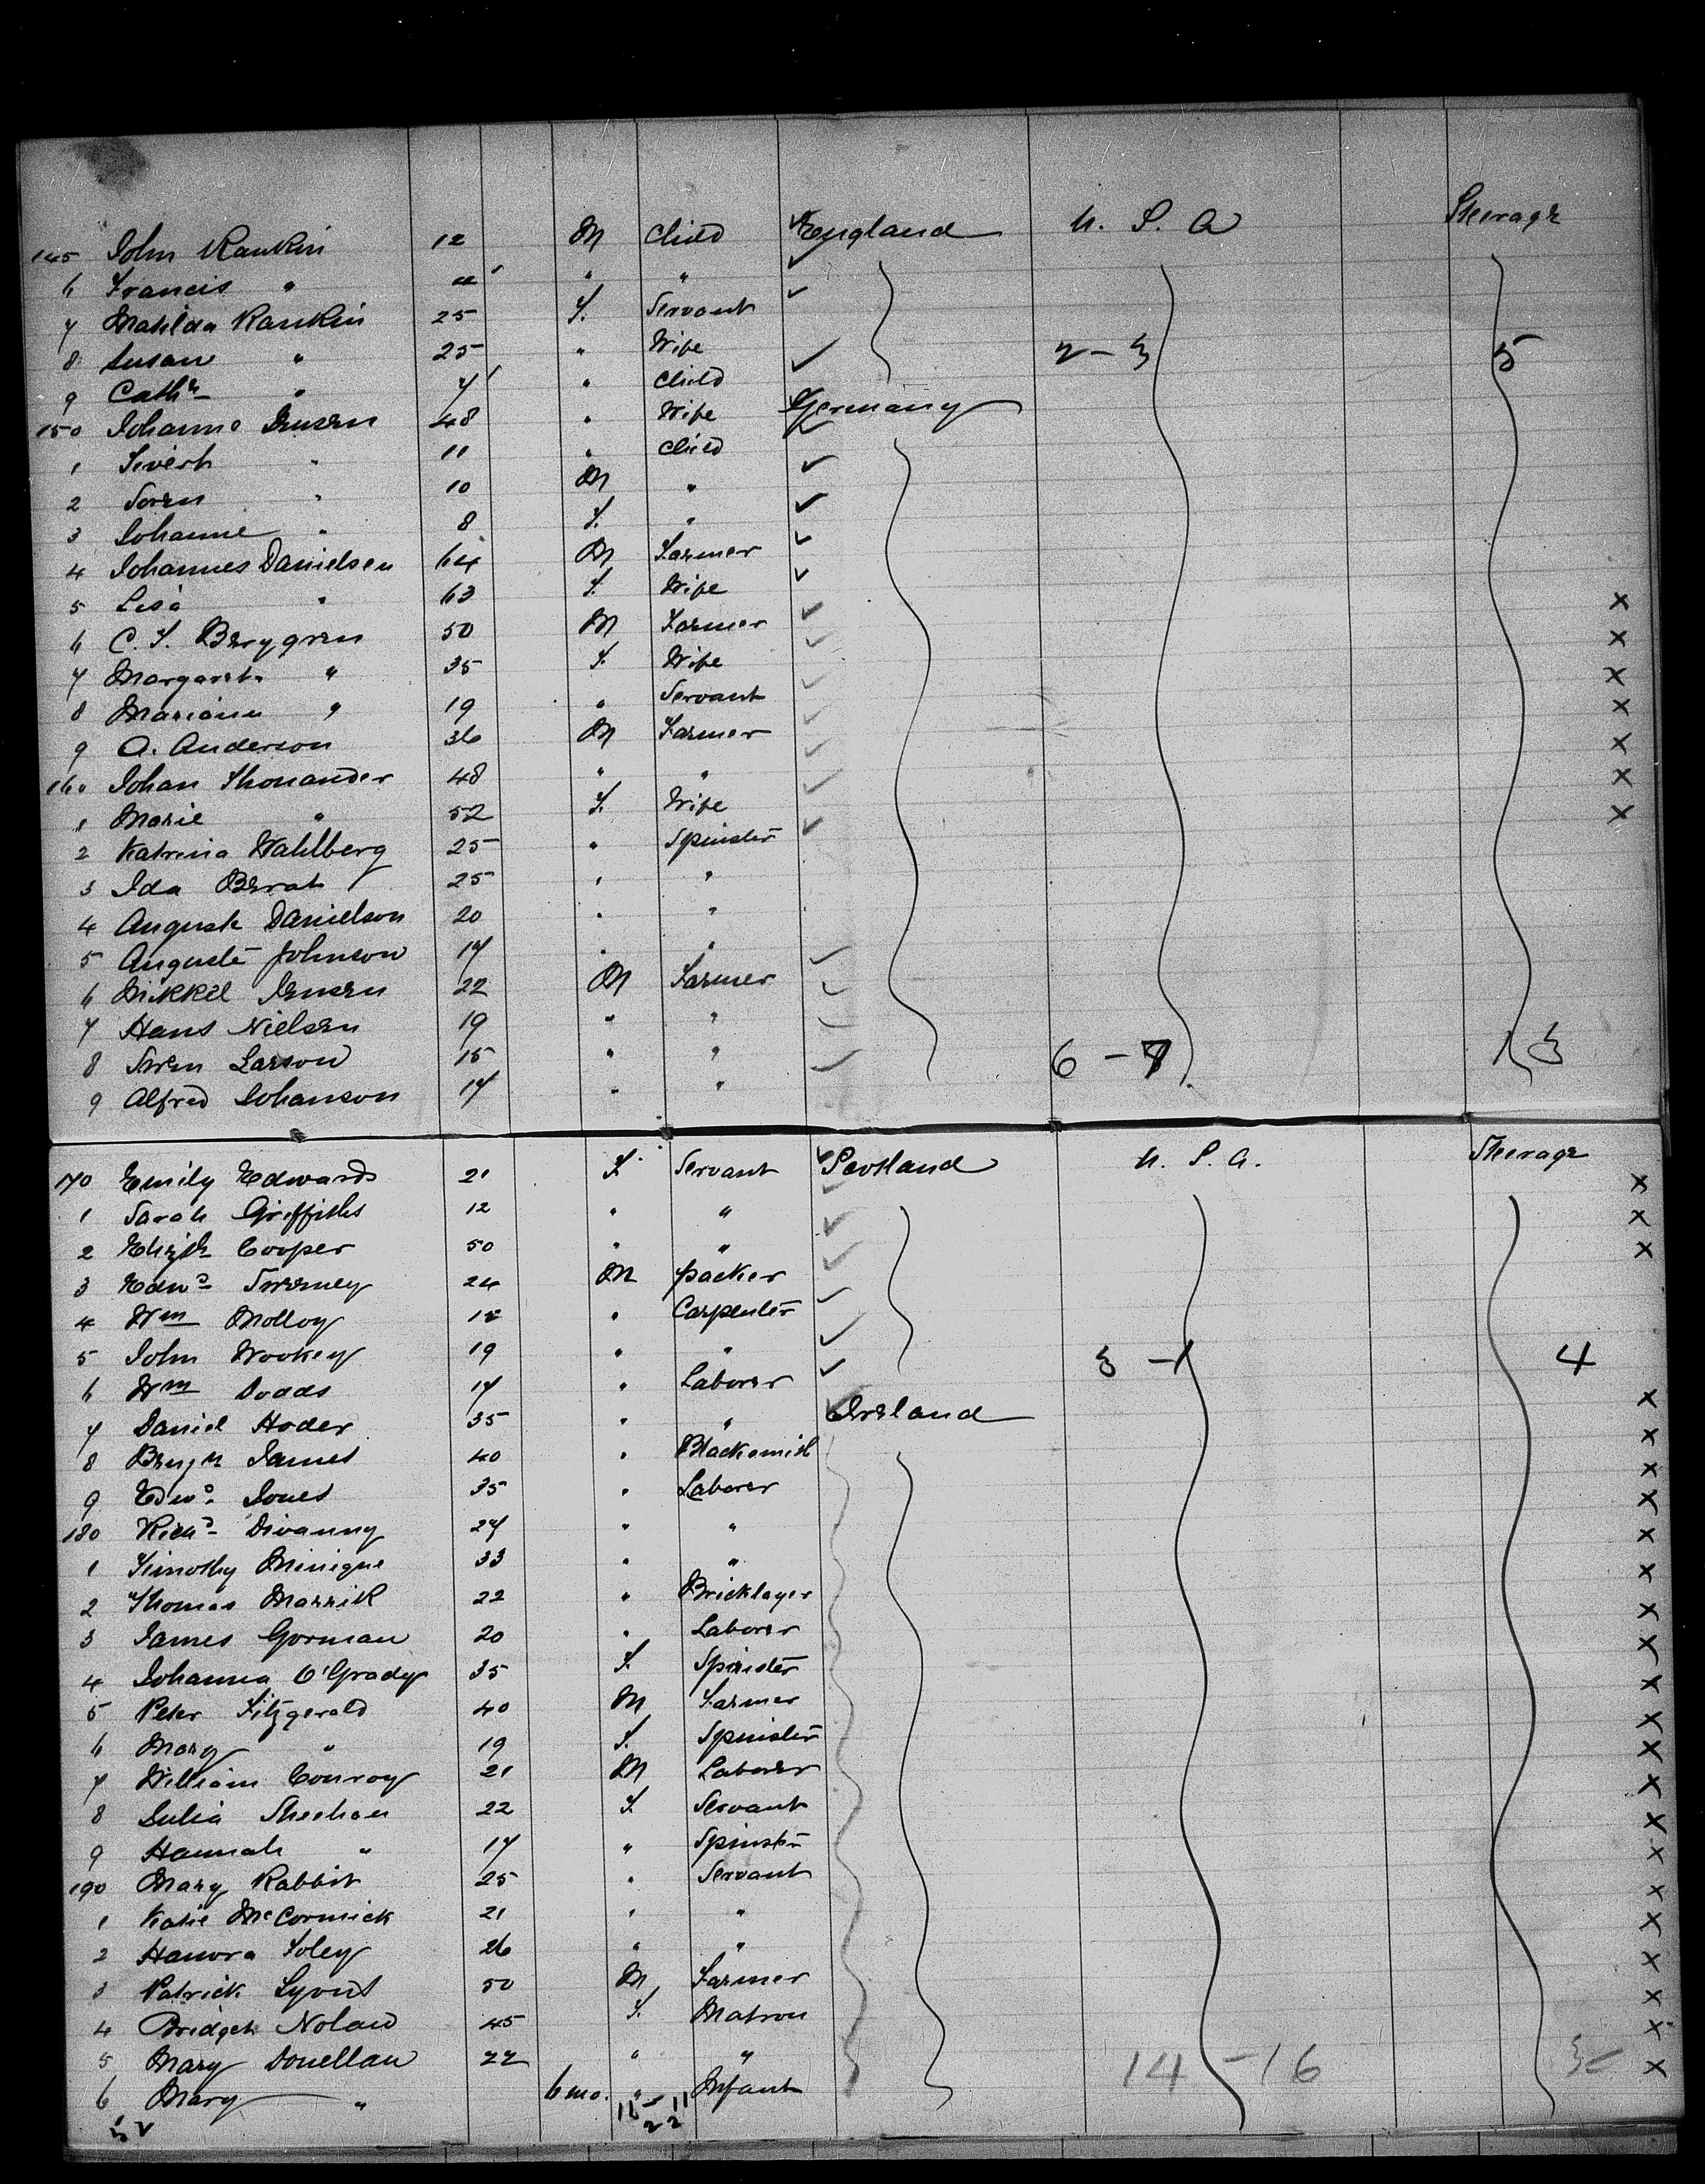 145 John Rankin 12 M Child England U. S. A Steerage
6 Francis " " "
7 Matilda Rankin 25 F. Servant
8 Susan " 25 " Wife 2 - 3 5
9 Cathe " 7 " Child
150 Johanne Jensen 48 " Wife Germany
1 Sivert " 11 " Child
2 Soren " 10 M "
3 Johanne " 8 F. "
4 Johannes Danielsen 64 M Farmer
5 Lisa " 63 F. Wife
6 C. F. Berggren 50 M Farmer x
7 Margareta " 35 F. Wife x
8 Mariana " 19 " Servant x
9 A. Anderson 36 M Farmer x
160 Johan Thonander 48 " " x
1 Marie " 52 F. Wife x
2 Katrina Wahlberg 25 " Spinster x
3 Ida Berat 25 " "
4 August Danielson 20 " "
5 Auguste Johnson 17 " "
6 Mikkel Jensen 22 M Farmer
7 Hans Nielsen 19 " "
8 Sven Larson 15 " " 6 - 7 13
9 Alfred Johanson 17 " "
170 Emily Edwards 21 F. Servant Scotland U. S. A. Steerage
1 Sarah Griffiths 12 " " x
2 Elizth Cooper 50 " " x
3 Edwd Sweeney 24 M packer x
4 Wm Molloy " Carpenter
5 John Wookey 19 " " 3 - 1 4
6 Wm Dodds 17 " Laborer
7 Daniel Hoder 35 " " Ireland x
8 Benjn James 40 " Blacksmith x
9 Edwd Jones 35 " Laborer x
180 Richd Divanny 27 " " x
1 Timothy Minigue 33 " " x
2 Thomas Marrik 22 " Bricklayer x
3 James Gorman 20 " Laborer x
4 Johanna O'Grady 35 F. Spinster x
5 Peter Fitzgerald 40 M Farmer x
6 Mary " 19 F. Spinster x
7 William Conroy 21 M Laborer x
8 Julia Sheehan 22 F Servant x
9 Hannah " 17 " Spinster x
190 Mary Rabbit 25 " Servant x
1 Katie McCormick 21 " " x
2 Hanora Foley 26 " " x
3 Patrick Lyons 50 M Farmer x
4 Bridget Nolan 45 F. Matron x
5 Mary Donellan 22 " " 14 - 16 x
6 Mary " 6 mo. " Infant x